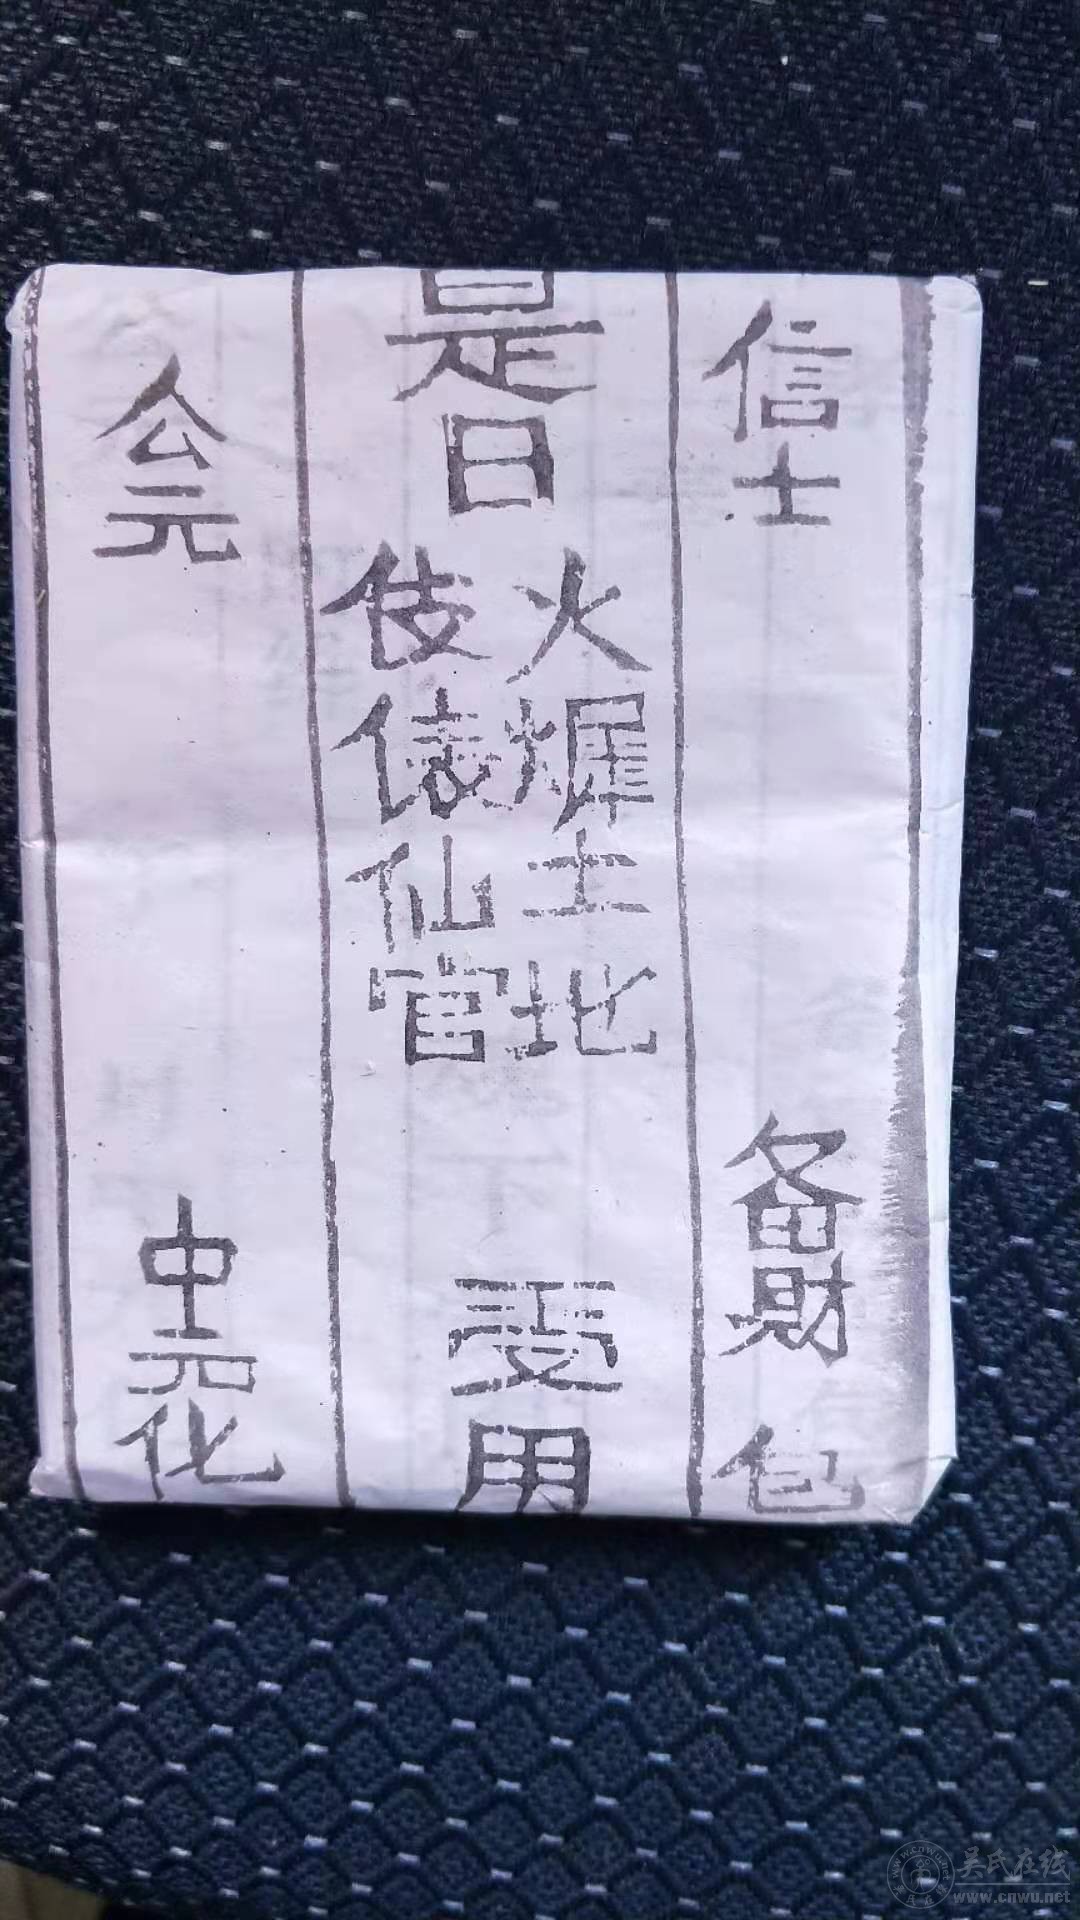 信士
备财
包
是日
火墀土地
伎俵仙官
受用
公元
中元化
吴氏在线
www.cnwu.net